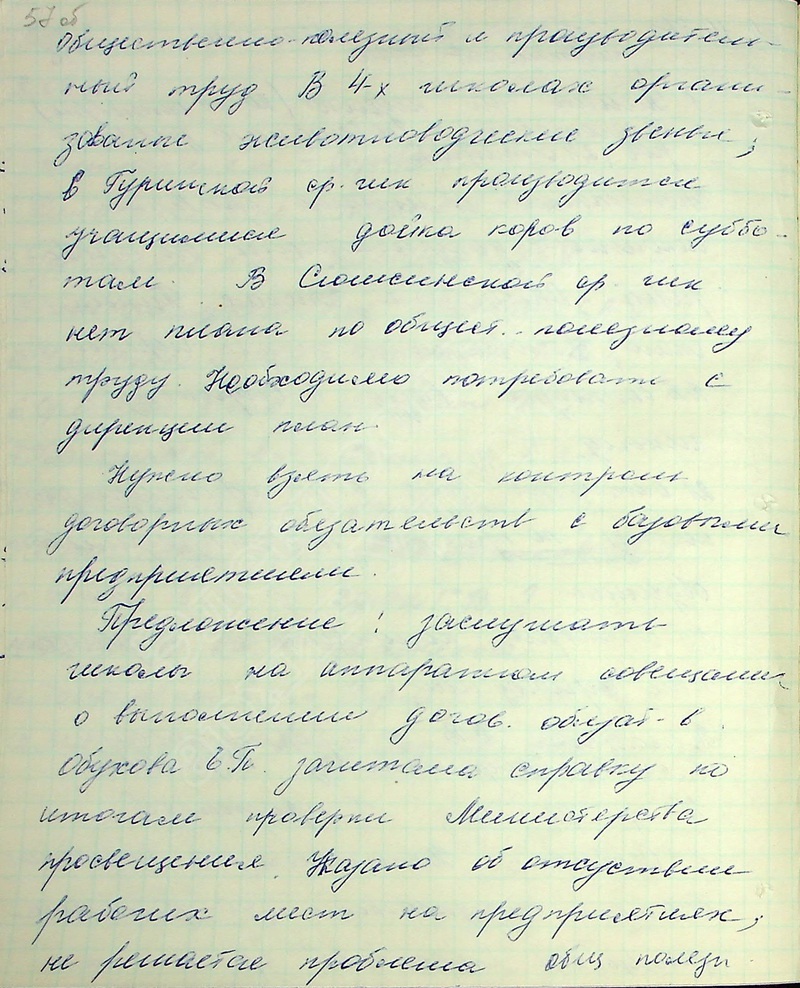 57 об
Общественно-полезный и производитель-
ный труд В 4-х школах органи-
зованы животноводческие звенья;
в Гуринской ср. шк производится
учащимися дойка коров по суббо-
там. В Сюмсинской ср. шк.
нет плана по общест. полезному
труду. Необходимо потребовать с
дирекции план.
Нужно взять на контроль
договорных обязательств с базовыми
предприятиями.
Предложение: заслушать
школы на аппаратном совещании
о выполнении догов. обязат-в.
Обухова зачитала справку по
итогам проверки Министерства
просвещения. Указано об отсутствии
рабочих мест на предприятиях;
не решается проблема общ полезн.